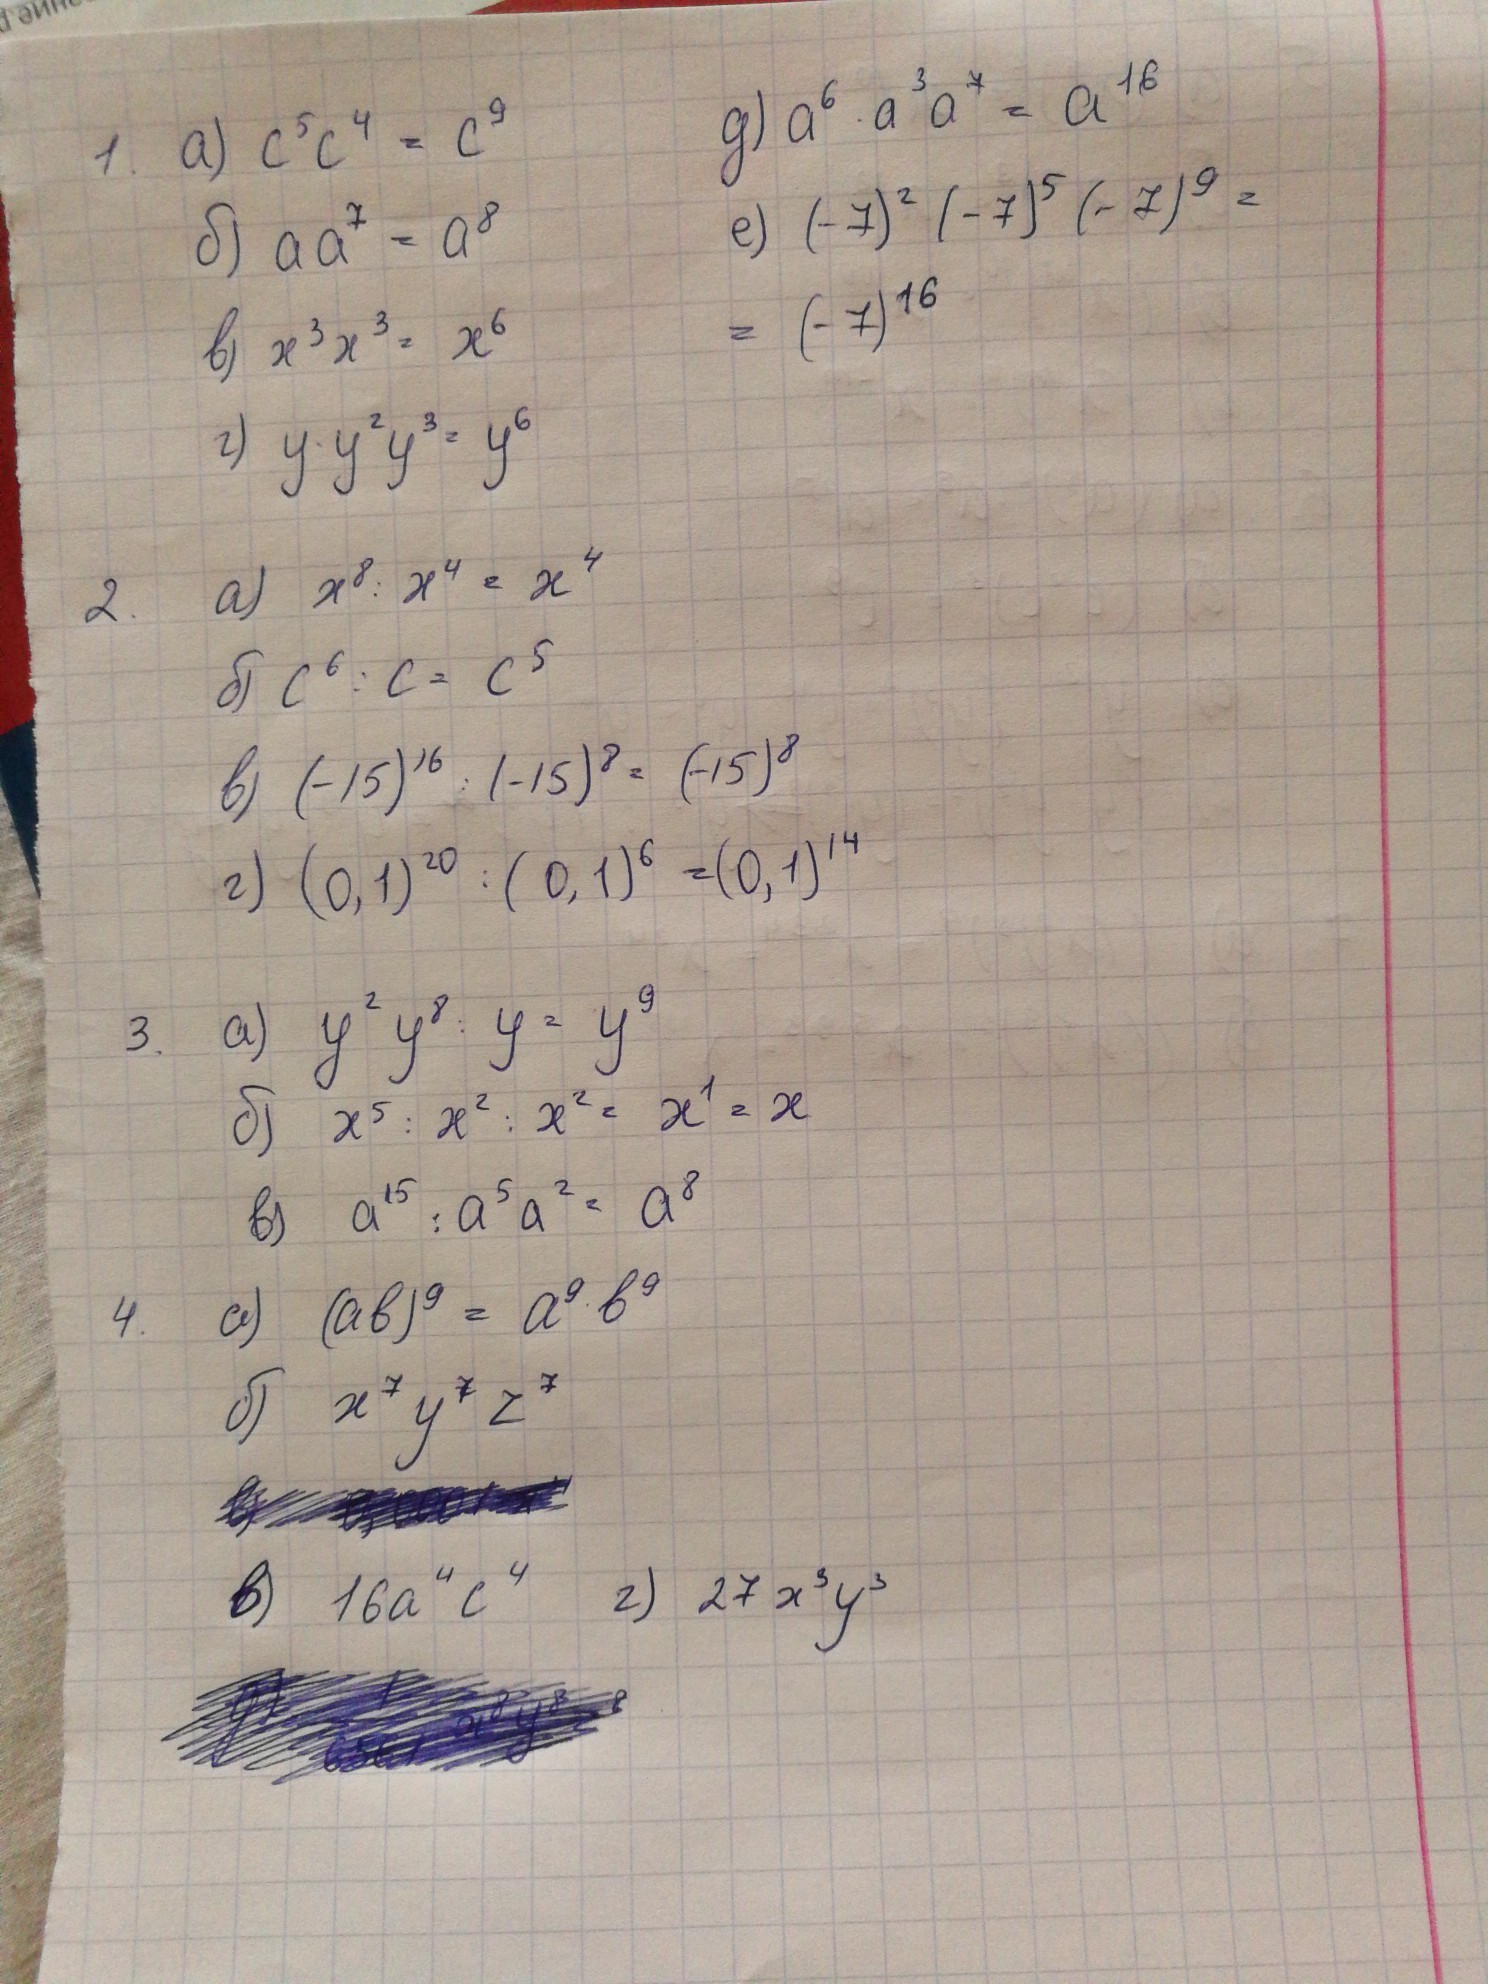 1. а) c⁵c⁴ = c⁹
б) aa⁷ = a⁸
в) x³x³ = x⁶
г) y·y²y³ = y⁶
д) a⁶·a³a⁷ = a¹⁶
е) (-7)²(-7)⁵(-7)⁹ =
= (-7)¹⁶
2. а) x⁸ : x⁴ = x⁴
б) c⁶ : c = c⁵
в) (-15)¹⁶ : (-15)⁸ = (-15)⁸
г) (0,1)²⁰ : (0,1)⁶ = (0,1)¹⁴
3. а) y²y⁸ : y = y⁹
б) x⁵ : x² : x² = x¹ = x
в) a¹⁵ : a⁵a² = a⁸
4. а) (ab)⁹ = a⁹·b⁹
б) x⁷y⁷z⁷
в) 16a⁴c⁴ г) 27x³y³